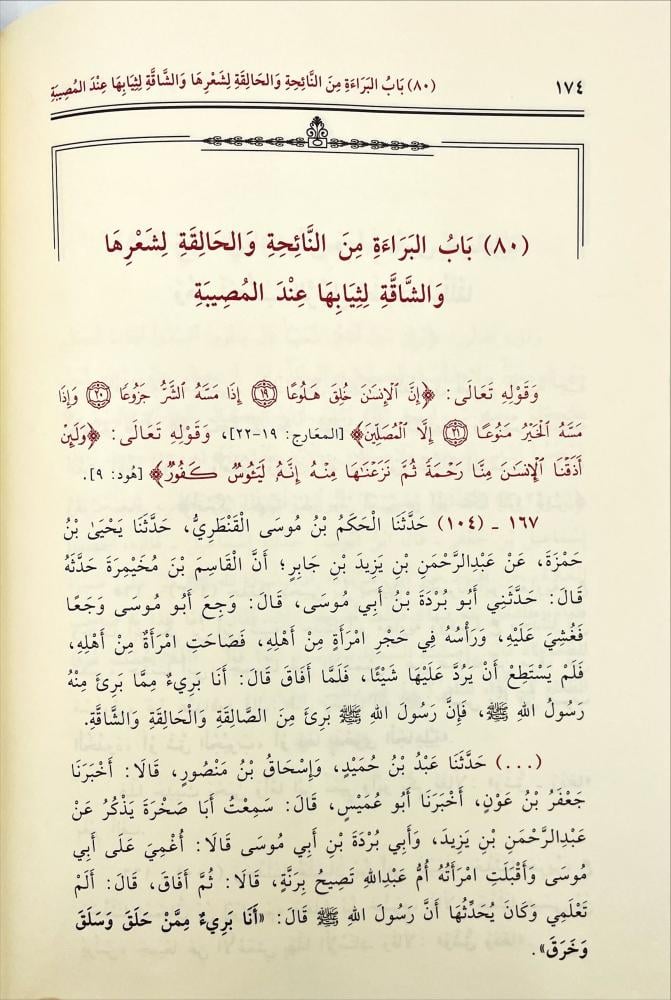 ١٧٤ (٨٠) بَابُ البَرَاءَةِ مِنَ النَّائِحَةِ وَالحَالِقَةِ لِشَعْرِهَا وَالشَّاقَّةِ لِثِيَابِهَا عِنْدَ المُصِيبَةِ
(٨٠) بَابُ البَرَاءَةِ مِنَ النَّائِحَةِ وَالحَالِقَةِ لِشَعْرِهَا
وَالشَّاقَّةِ لِثِيَابِهَا عِنْدَ المُصِيبَةِ
وَقَوْلِهِ تَعَالَى: ﴿إِنَّ ٱلْإِنسَٰنَ خُلِقَ هَلُوعًا ١٩ إِذَا مَسَّهُ ٱلشَّرُّ جَزُوعًا ٢٠ وَإِذَا
مَسَّهُ ٱلْخَيْرُ مَنُوعًا ٢١ إِلَّا ٱلْمُصَلِّينَ﴾ [المعَارج: ١٩-٢٢]، وَقَوْلِهِ تَعَالَى: ﴿وَلَئِنْ
أَذَقْنَا ٱلْإِنسَٰنَ مِنَّا رَحْمَةً ثُمَّ نَزَعْنَٰهَا مِنْهُ إِنَّهُ لَيَـُٔوسٌ كَفُورٌ﴾ [هُود: ٩].
١٦٧ ـ (١٠٤) حَدَّثَنَا الْحَكَمُ بْنُ مُوسَى الْقَنْطَرِيُّ، حَدَّثَنَا يَحْيَىٰ بْنُ
حَمْزَةَ، عَنْ عَبْدِالرَّحْمَنِ بْنِ يَزِيدَ بْنِ جَابِرٍ؛ أَنَّ الْقَاسِمَ بْنَ مُخَيْمِرَةَ حَدَّثَهُ
قَالَ: حَدَّثَنِي أَبُو بُرْدَةَ بْنُ أَبِي مُوسَى، قَالَ: وَجِعَ أَبُو مُوسَى وَجَعًا
فَغُشِيَ عَلَيْهِ، وَرَأْسُهُ فِي حَجْرِ امْرَأَةٍ مِنْ أَهْلِهِ، فَصَاحَتِ امْرَأَةٌ مِنْ أَهْلِهِ،
فَلَمْ يَسْتَطِعْ أَنْ يَرُدَّ عَلَيْهَا شَيْئًا، فَلَمَّا أَفَاقَ قَالَ: أَنَا بَرِيءٌ مِمَّا بَرِئَ مِنْهُ
رَسُولُ اللهِ ﷺ، فَإِنَّ رَسُولَ اللهِ ﷺ بَرِئَ مِنَ الصَّالِقَةِ وَالْحَالِقَةِ وَالشَّاقَّةِ.
(...) حَدَّثَنَا عَبْدُ بْنُ حُمَيْدٍ، وَإِسْحَاقُ بْنُ مَنْصُورٍ، قَالَا: أَخْبَرَنَا
جَعْفَرُ بْنُ عَوْنٍ، أَخْبَرَنَا أَبُو عُمَيْسٍ، قَالَ: سَمِعْتُ أَبَا صَخْرَةَ يَذْكُرُ عَنْ
عَبْدِالرَّحْمَنِ بْنِ يَزِيدَ، وَأَبِي بُرْدَةَ بْنِ أَبِي مُوسَى قَالَا: أُغْمِيَ عَلَى أَبِي
مُوسَى وَأَقْبَلَتِ امْرَأَتُهُ أُمُّ عَبْدِاللهِ تَصِيحُ بِرَنَّةٍ، قَالَا: ثُمَّ أَفَاقَ، قَالَ: أَلَمْ
تَعْلَمِي وَكَانَ يُحَدِّثُهَا أَنَّ رَسُولَ اللهِ ﷺ قَالَ: «أَنَا بَرِيءٌ مِمَّنْ حَلَقَ وَسَلَقَ
وَخَرَقَ».